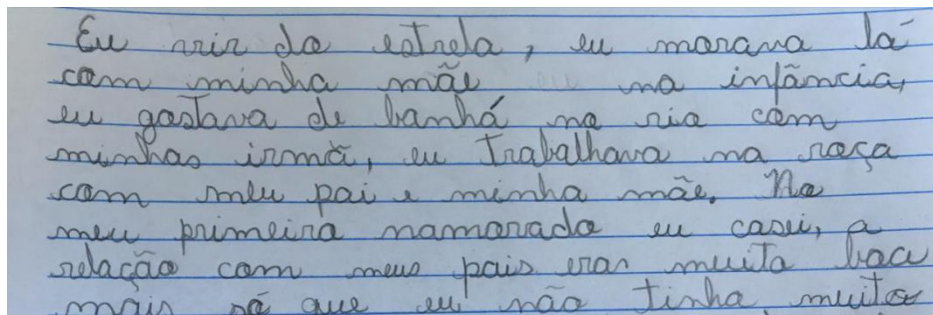 Eu nrir do estrela, eu morava lá
com minha mãe na infância,
eu gostava de banhá no rio com
minhas irmã, eu trabalhava na roça
com meu pai e minha mãe. No
meu primeiro namorado eu casei, a
relação com meus pais eras muito boa
mais só que eu não tinha muitos